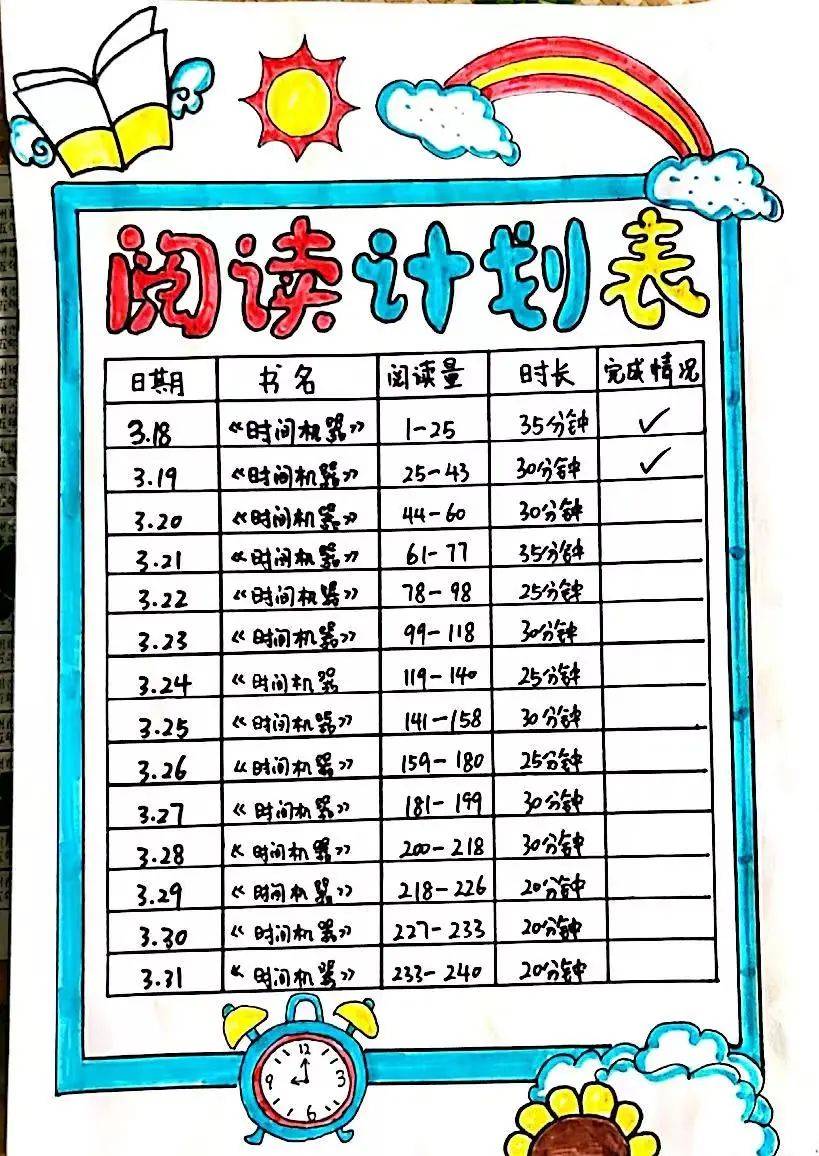 阅读计划表
日期 书名 阅读量 时长 完成情况
3.18 《时间机器》 1-25 35分钟 ✓
3.19 《时间机器》 25-43 30分钟 ✓
3.20 《时间机器》 44-60 30分钟
3.21 《时间机器》 61-77 35分钟
3.22 《时间机器》 78-98 25分钟
3.23 《时间机器》 99-118 30分钟
3.24 《时间机器 119-140 25分钟
3.25 《时间机器》 141-158 30分钟
3.26 《时间机器》 159-180 25分钟
3.27 《时间机器》 181-199 30分钟
3.28 《时间机器》 200-218 30分钟
3.29 《时间机器》 218-226 20分钟
3.30 《时间机器》 227-233 20分钟
3.31 《时间机器》 233-240 20分钟
12
9 3
6